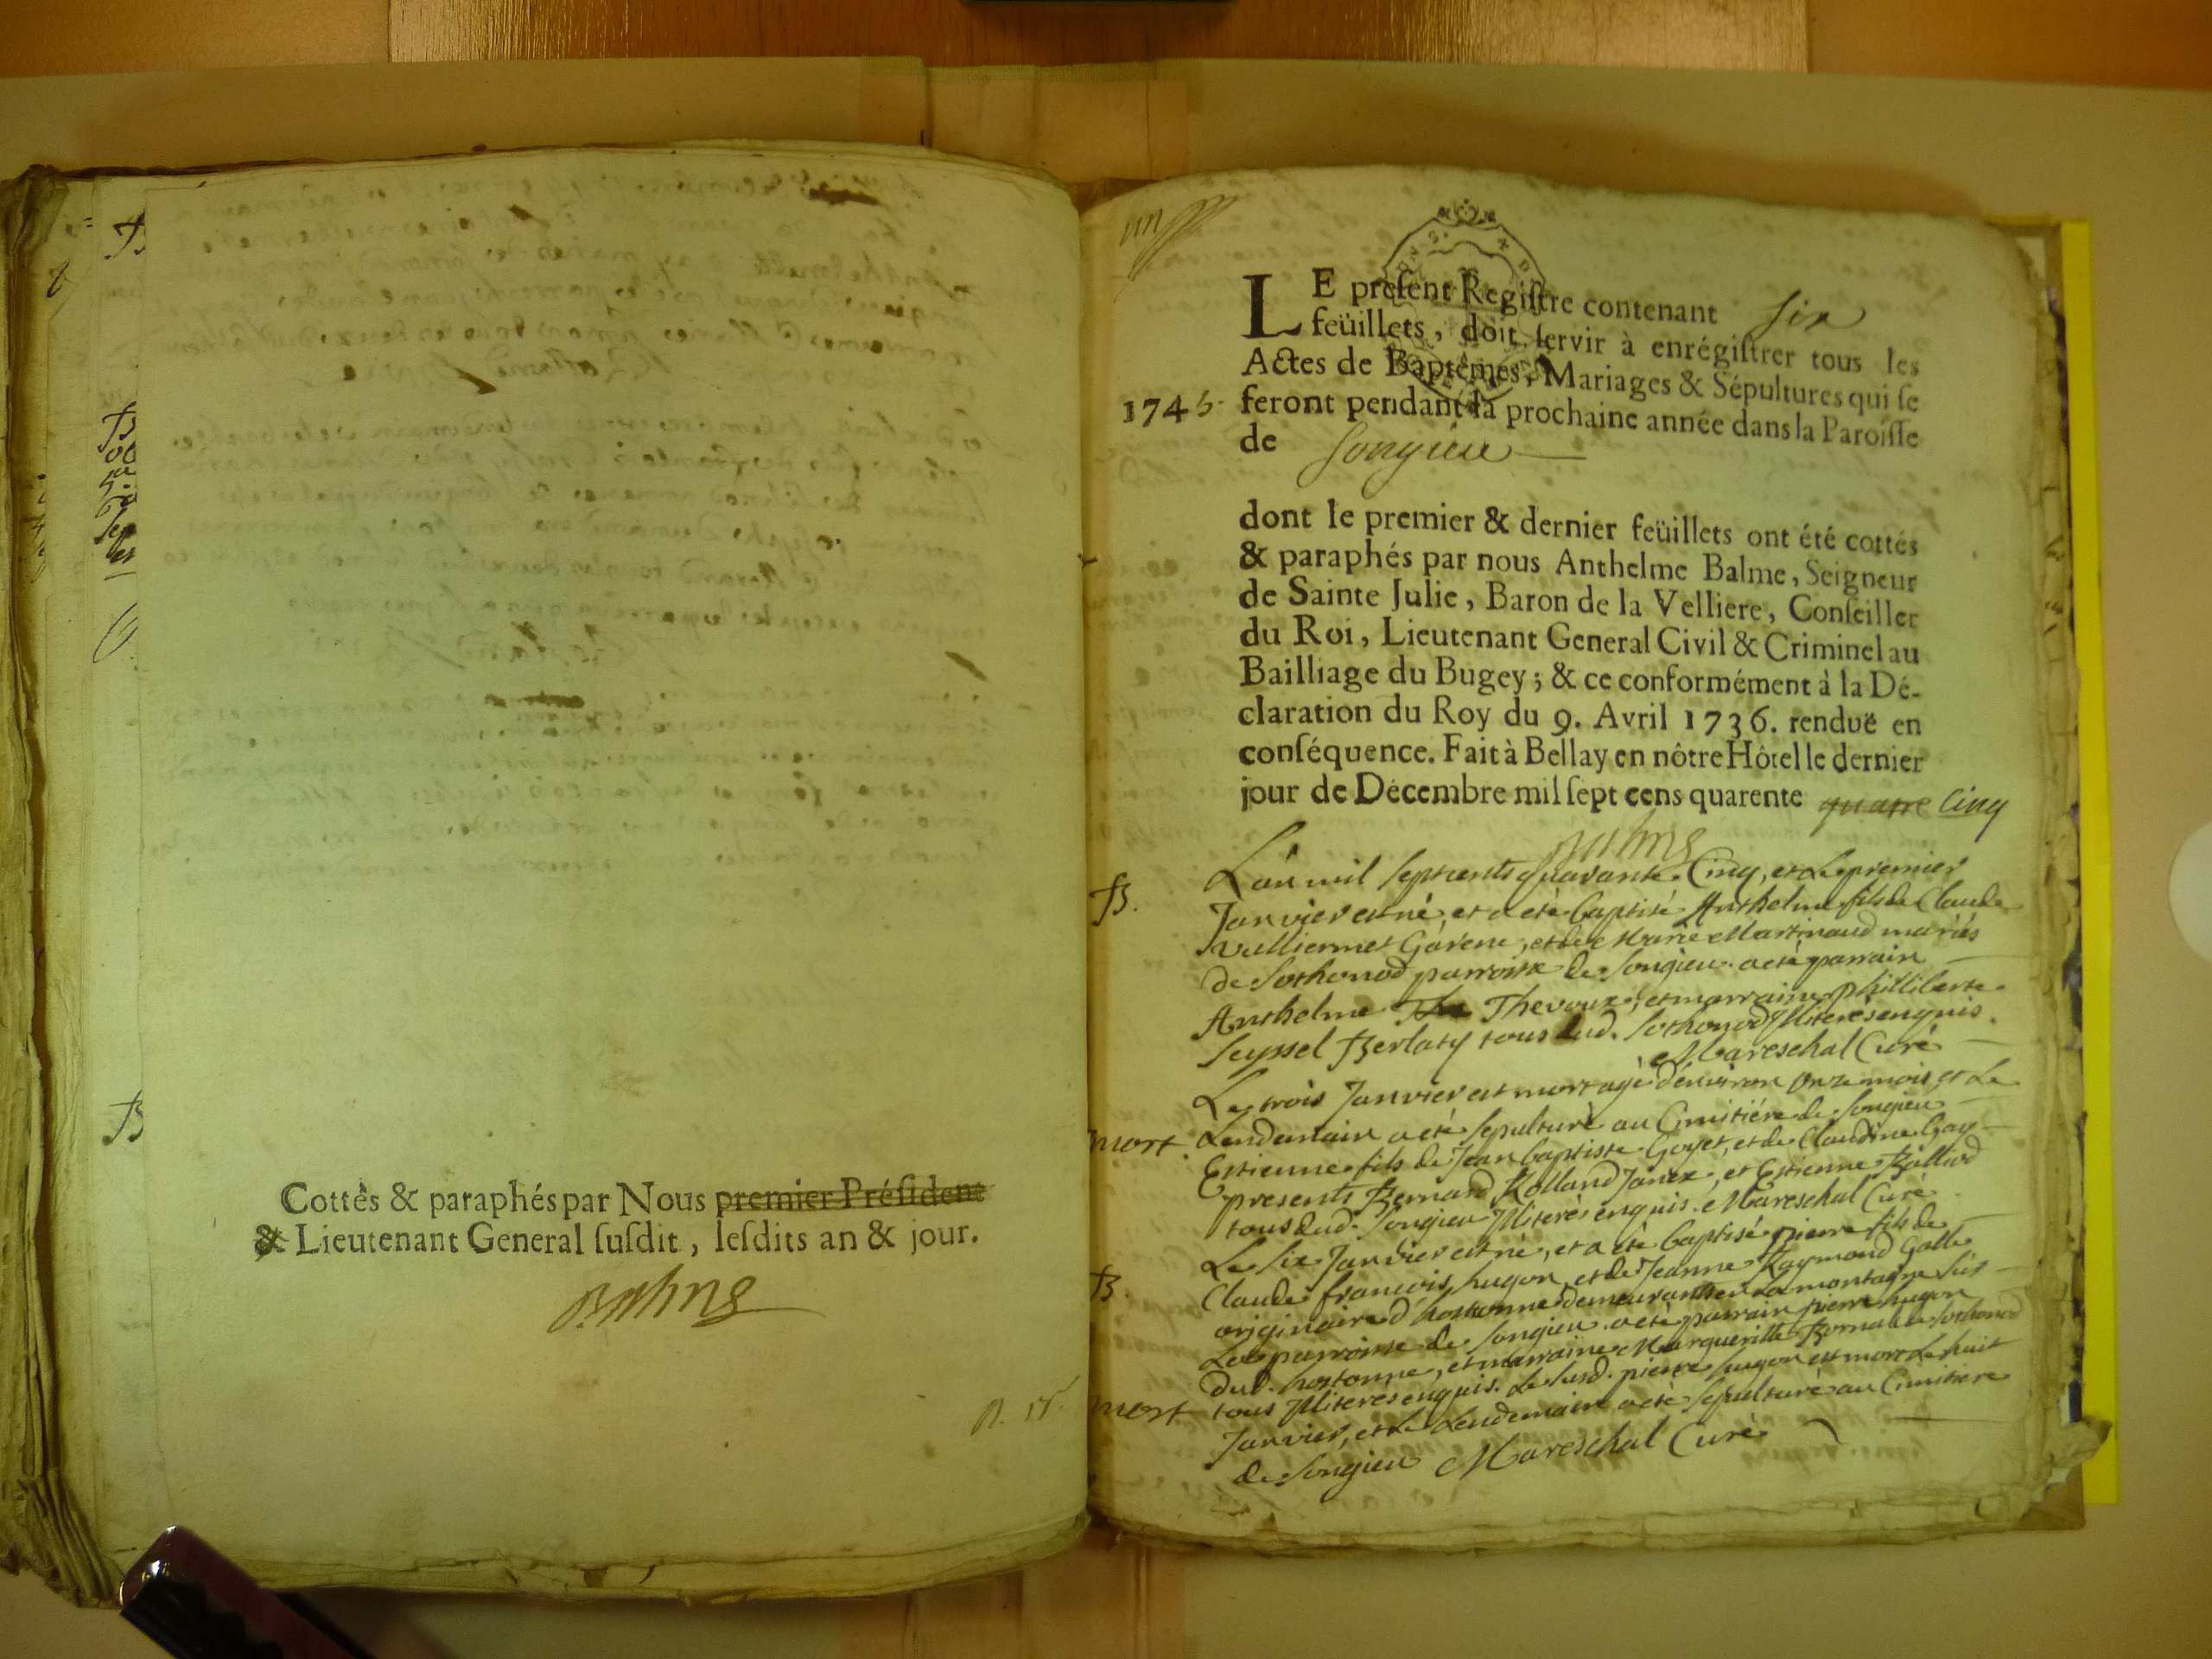 B
B
Cottés & paraphés par Nous premier Président
& Lieutenant General susdit, lesdits an & jour.
Balme
un
LE present Registre contenant six
feüillets, doit servir à enrégistrer tous les
Actes de Baptêmes, Mariages & Sépultures qui se
1745 feront pendant la prochaine année dans la Paroisse
de Songieu
dont le premier & dernier feüillets ont été cottés
& paraphés par nous Anthelme Balme, Seigneur
de Sainte Julie, Baron de la Velliere, Conseiller
du Roi, Lieutenant General Civil & Criminel au
Bailliage du Bugey; & ce conformément à la Dé-
claration du Roy du 9. Avril 1736. renduë en
conséquence. Fait à Bellay en nôtre Hôtel le dernier
jour de Décembre mil sept cens quarente quatre Cinq
Balme
L'an mil septcents quarante Cinq, et Le premier
B. Janvier est né, et a eté baptisé Anthelme fils de Claude
Vulliermet Garene, et de Marie Martinaud mariés
de Sothonod parroisse de Songieu. a eté parrain
Anthelme Thevoux, et marraine phillberte
Seyssel Berlaty tous dud. Sothonod Illiterés enquis.
Mareschal Curé
Le trois Janvier est mort agé d'environ onze mois et Le
mort. Lendemain a eté sepulturé au Cimitiére de Songieu
Estienne fils de Jean baptiste Goyet, et de Claudine Gay
presents Bernard Rolland Janex, et Estienne Balliod
tous dud. Songieu Illiterés enquis. Mareschal Curé
Le six Janvier est né, et a eté baptisé pierre fils de
B. Claude francois hugon, et de Jeanne Raymond Galle
originaire d'hostonne demeurants en La montagne sur
La parroisse de Songieu. a eté parrain pierre hugon
dud. hostonne, et marraine Margueritte de Sothonod
tous Illiterés enquis. Le susd. pierre hugon est mort Le huit
mort Janvier, et Le Lendemain a eté sepulturé au Cimitiere
de Songieu Mareschal Curé